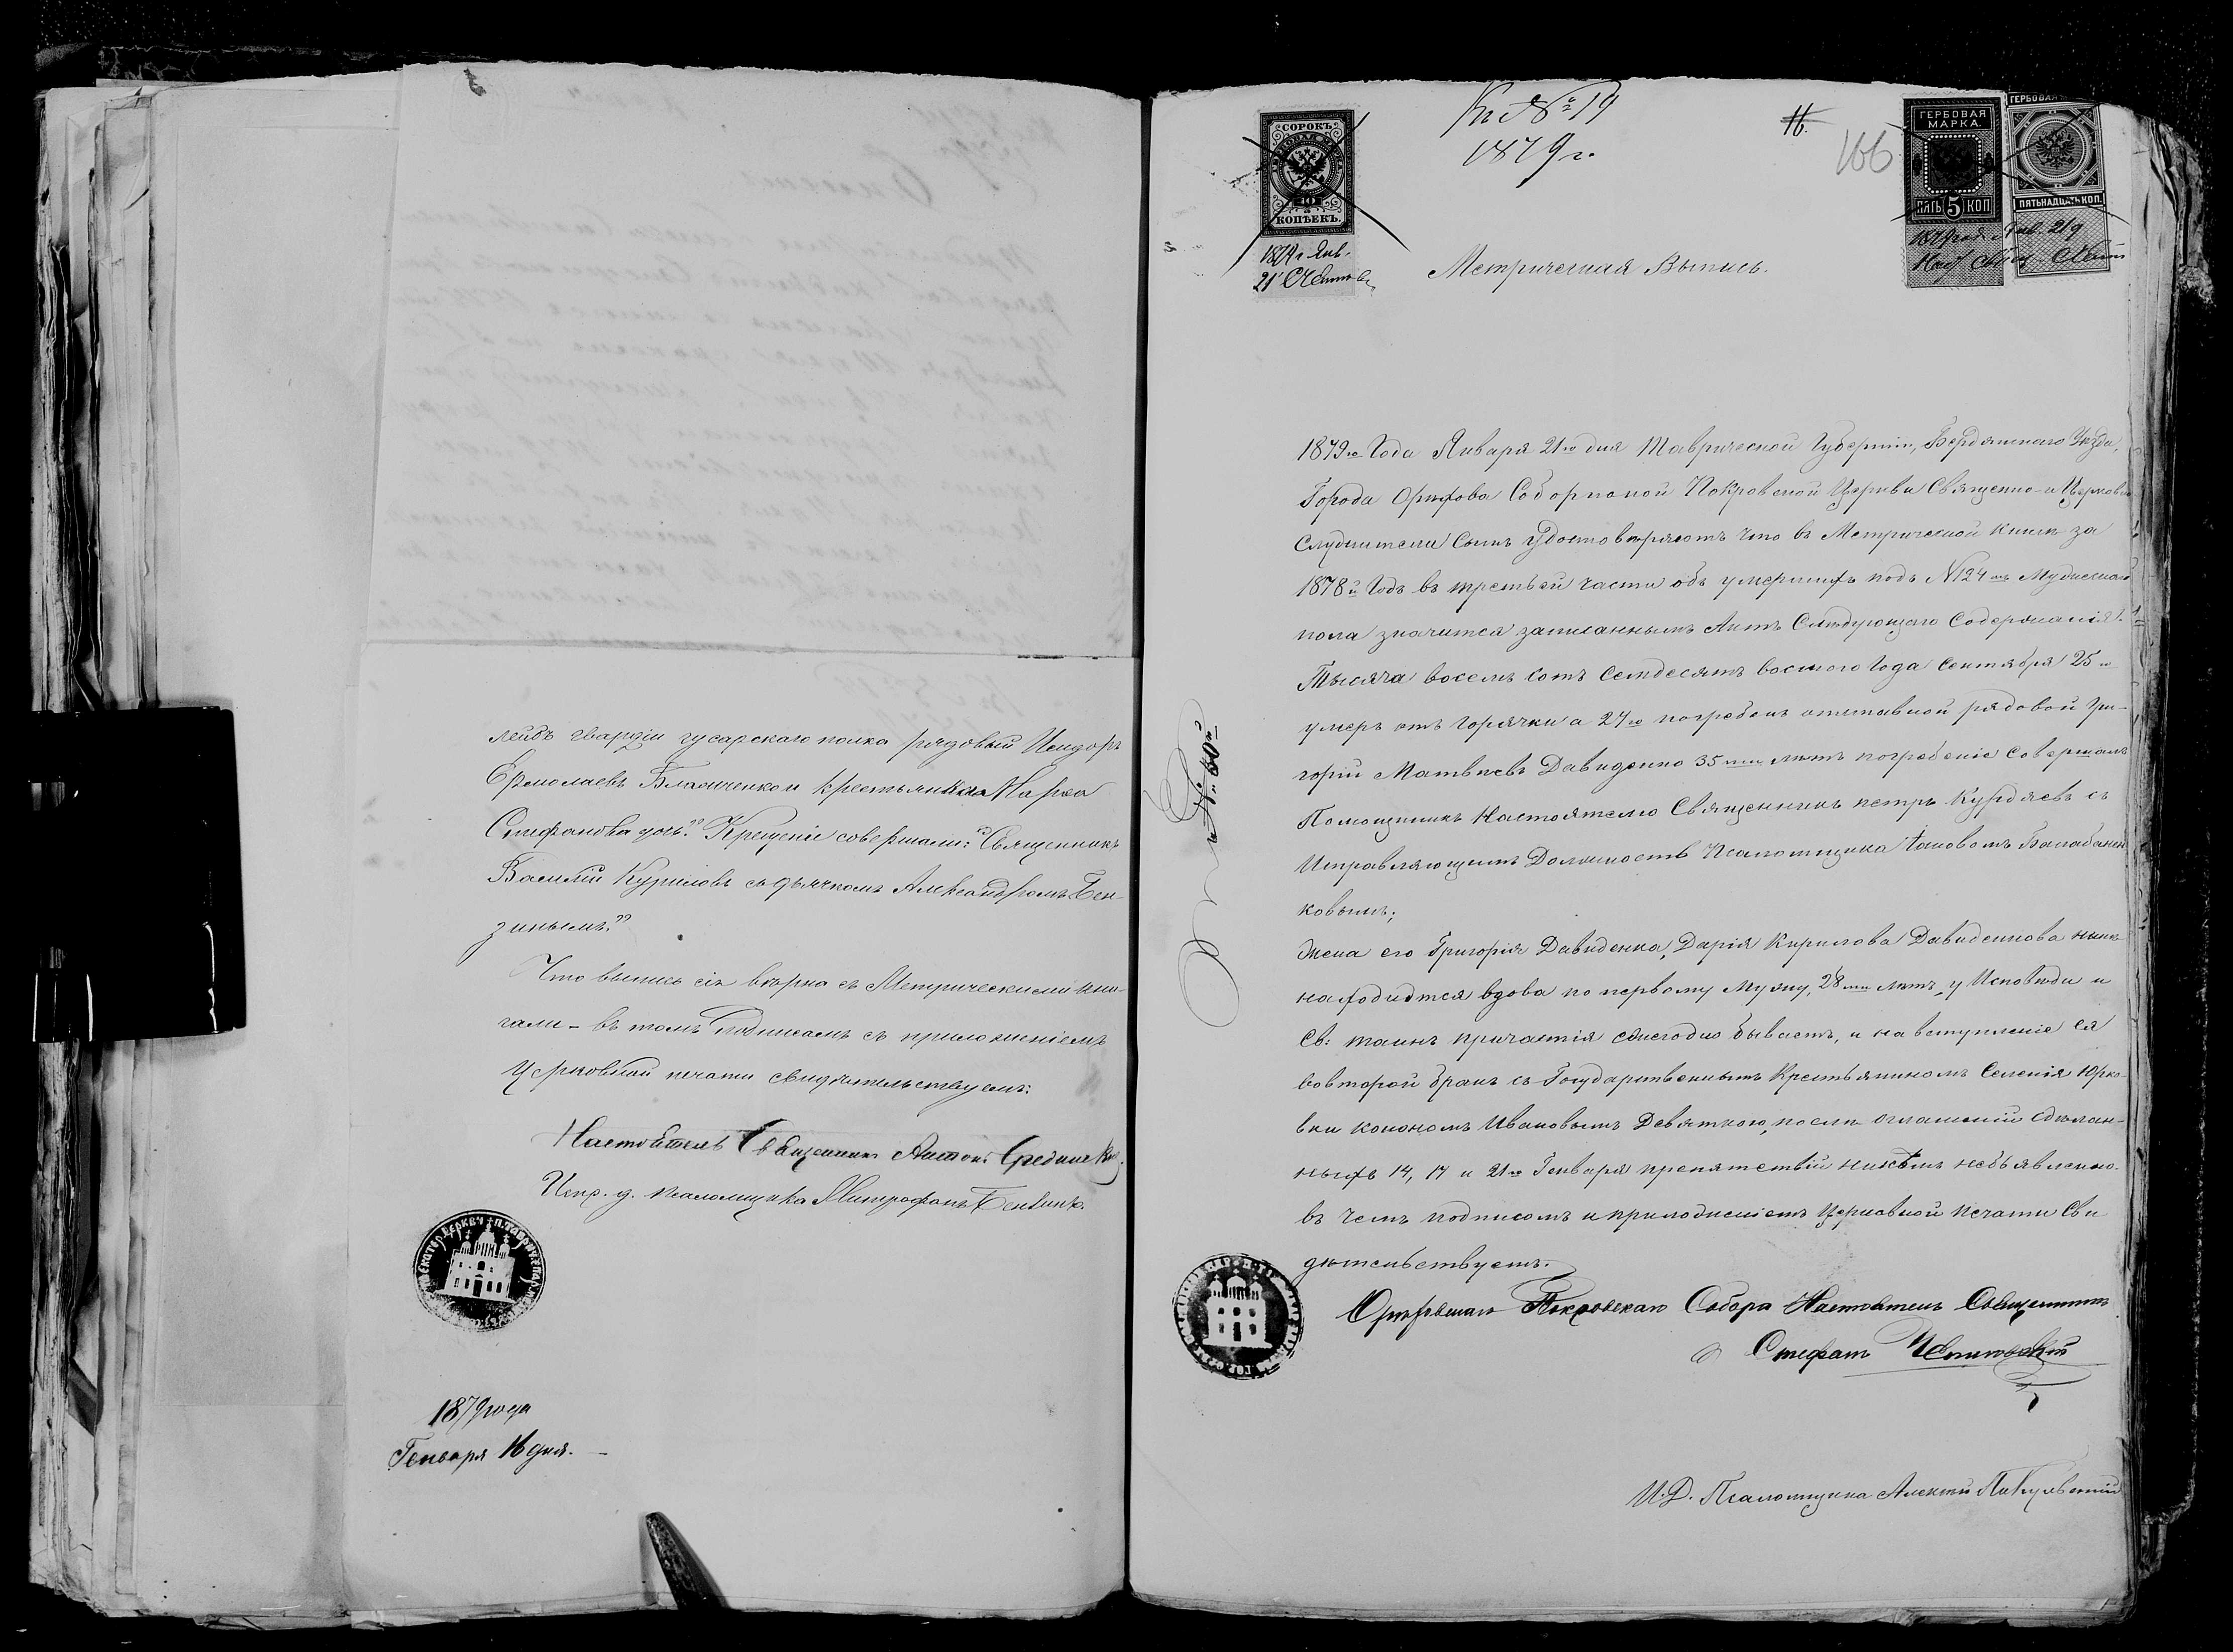 лейбъ гвардіи гусарскаго полка рядовый Исидоръ
Ермолаевъ крестьянка Марѳа
Стефанова дочь." Крещеніе совершали: Священникъ
Василій Куриловъ съ дьячкомъ Александромъ Бен-
зинымъ."
Что выпись сія вѣрна съ Метрическими кни-
гами – въ томъ подписомъ съ приложеніемъ
Церковной печати свидѣтельствуемъ:
Настоятель Священникъ Антонъ
Испр. д. псаломщика Митрофанъ
1879 года
Генваря 16 дня.
Къ № 19
1879 г.
166
СОРОКЪ
40
КОПѢЕКЪ.
1879 г. Янв.
21
ГЕРБОВАЯ
МАРКА.
ПЯТЬ 5 КОП
ГЕРБОВАЯ
ПЯТЬНАДЦАТЬ КОП.
1879 года Янв. 21 д
Метрическая Выпись.
1879го Года Января 21го дня Таврической Губерніи, Бердянскаго Уѣзда,
Города Орѣхова Соборной Покровской Церкви Священно-и Церковно
служители Симъ Удостовѣряютъ что въ Метрической книгѣ за
1878й Годъ въ третьей части объ умершихъ подъ №124мъ Мужескаго
пола значится записаннымъ Актъ Слѣдующаго Содержанія:
Тысяча восемъ сотъ Семдесятъ восмого Года Сентября 25го
умеръ отъ горячки а 27го погребенъ отставной рядовой Гри-
горій Матвѣевъ Давиденко 35ти лѣтъ погребеніе совершалъ
Помощникъ Настоятеля Священникъ Петръ Курдяевъ съ
Исправляющимъ Должность Псаломщика Іаковомъ Балабанен
ковымъ;
Жена его Григорія Давиденка, Дарія Кирилова Давиденкова нынѣ
находится вдова по первому мужу, 28ми лѣтъ, у Исповѣди и
Св: таинъ причастія ежегодно бываетъ, и на вступленіе ея
во второй бракъ съ Государственнымъ Крестьяниномъ Селенія Юрко-
вки Конономъ Ивановымъ Девяткою, послѣ оглашеній сдѣлан-
ныхъ 14, 17 и 21го Генваря препятствій никѣмъ необъявлено.
въ чемъ подписомъ и приложеніемъ Церковной печати Сви
дѣтельствуемъ.
Орѣховскаго Покровскаго Собора Настоятель Священникъ
Стефанъ
И.Д. Псаломщика Алексѣй